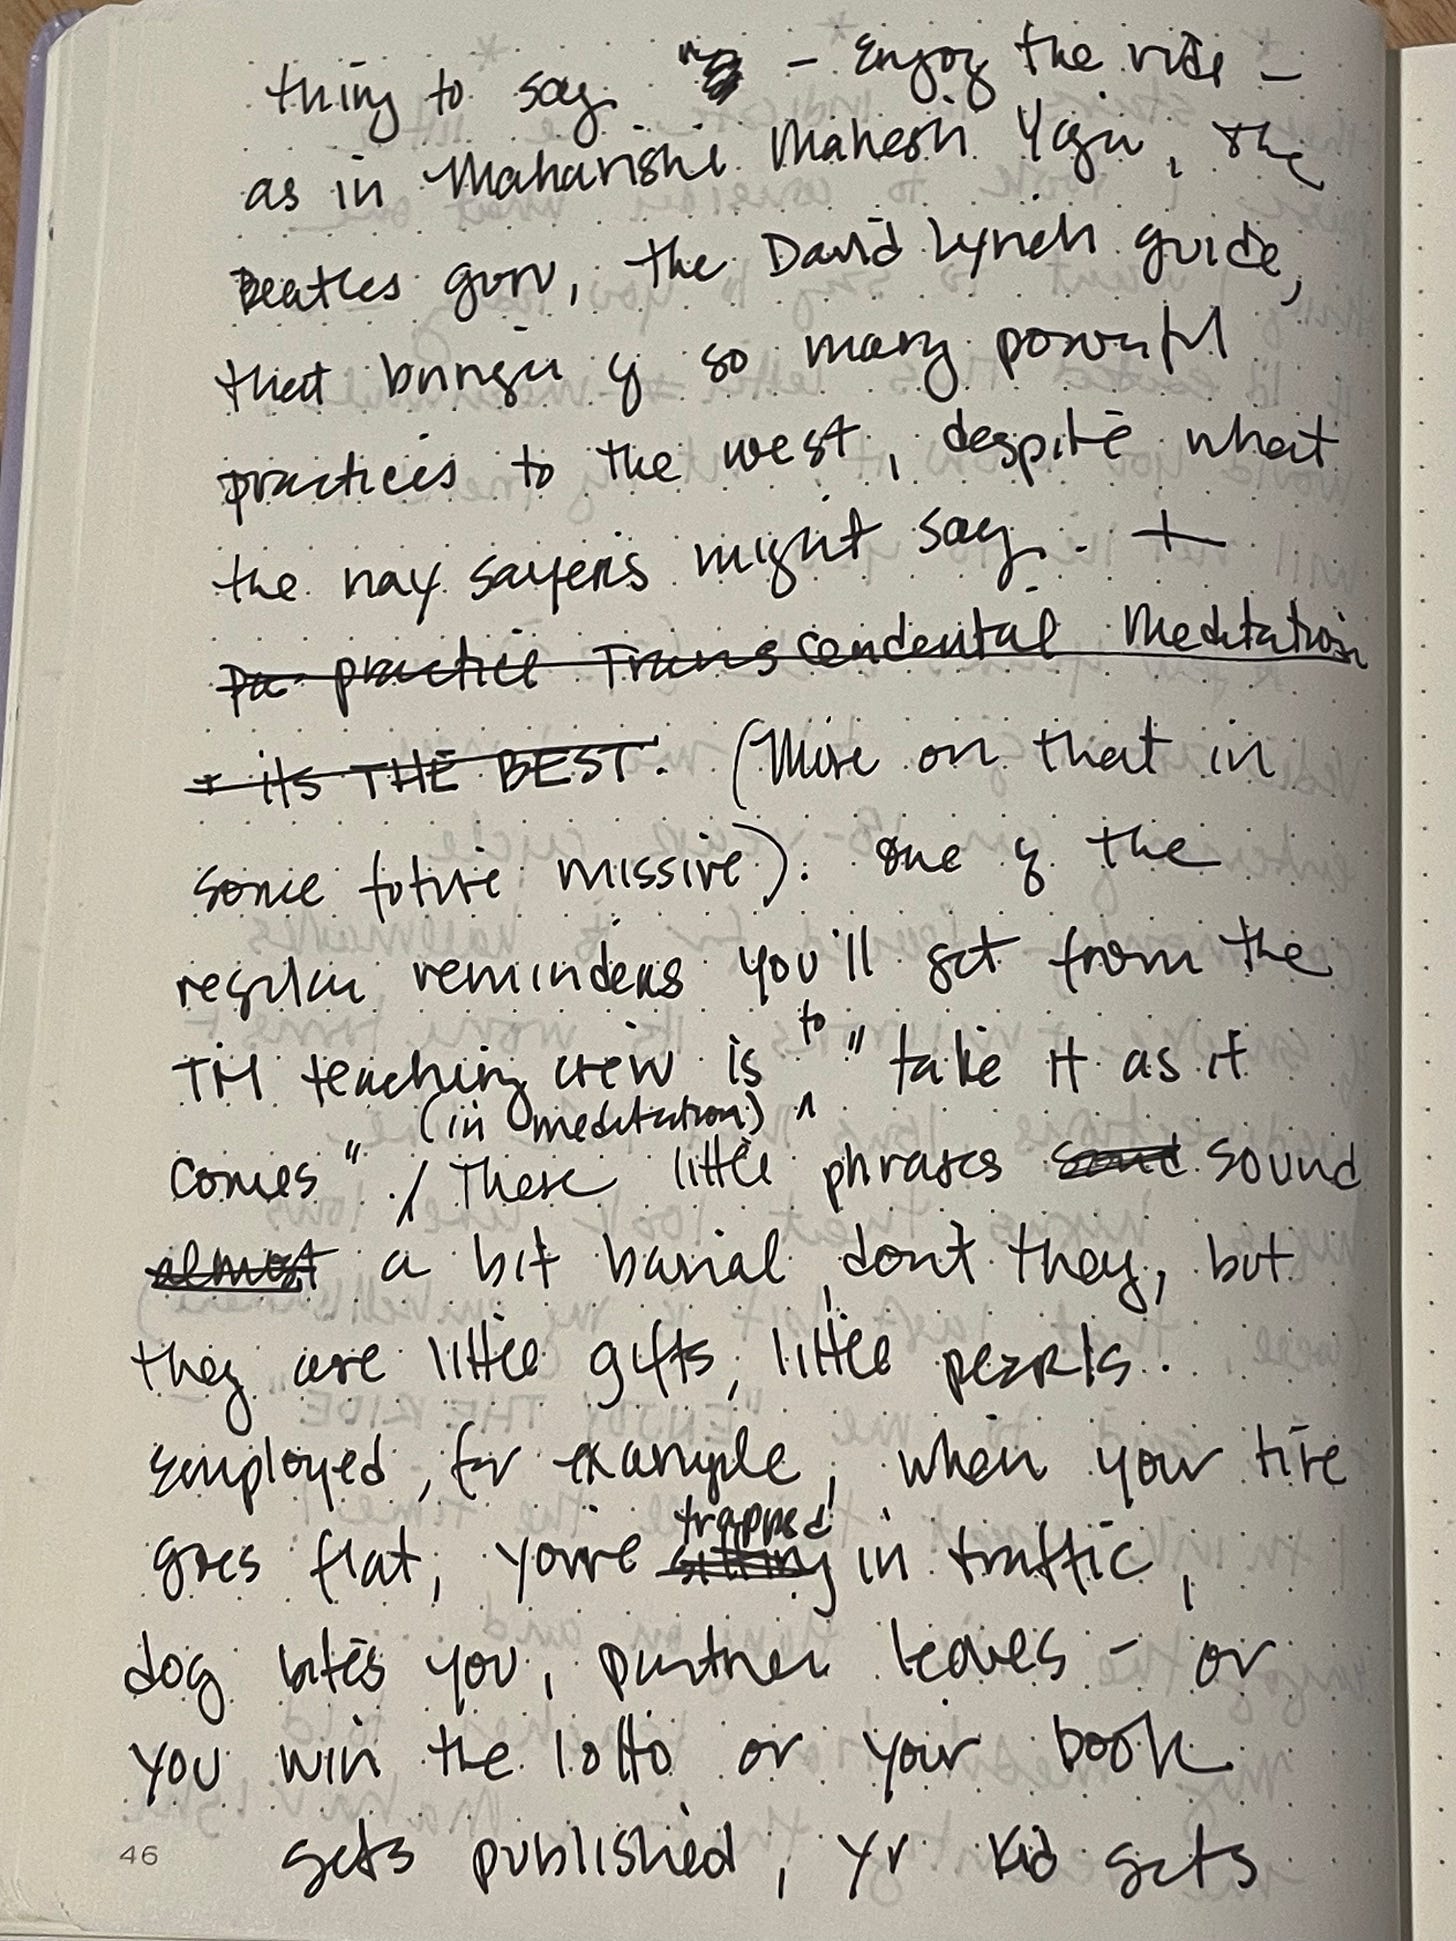 thing to say. – Enjoy the ride –
as in Maharishi Mahesh Yogi, the
Beatles guru, the David Lynch guide,
that bringer of so many powerful
practices to the west, despite what
the nay sayers might say. +
Do practice Transcendental Meditation
+ its THE BEST. (More on that in
some future missive). One of the
regular reminders you'll get from the
to
TM teaching crew is "take it as it
(in meditation)
comes". These little phrases sound
almost a bit banal, don't they, but
they are little gifts, little pearls.
Employed, for example, when your tire
trapped
goes flat, you're sitting in traffic,
dog bites you, partner leaves – or
you win the lotto or your book
46 gets published, yr kid gets